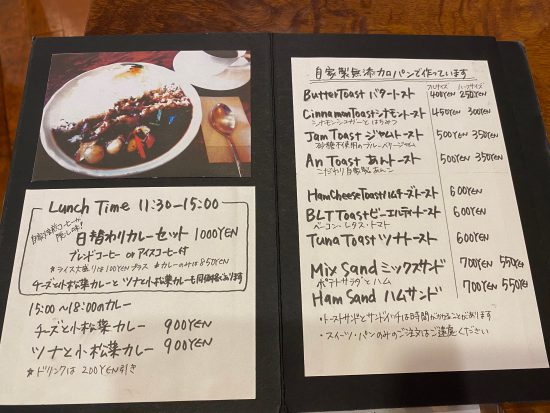 Lunch Time 11:30-15:00
日替わりカレーセット 1000YEN
ブレンドコーヒー or アイスコーヒー付
*ライス大盛りは100YENプラス *カレーのみは850YEN
チーズと小松菜カレーとツナと小松菜カレーも同価格であります
15:00~18:00のカレー
チーズと小松菜カレー 900YEN
ツナと小松菜カレー 900YEN
*ドリンクは200YEN引き
自家製無添加パンで作っています
フルサイズ ハーフサイズ
ButterToast バタートースト 400YEN 250YEN
CinnamonToast シナモントースト 450YEN 300YEN
シナモンシュガーとはちみつ
JamToast ジャムトースト 500YEN 350YEN
砂糖不使用のブルーベリージャム
An Toast あんトースト 500YEN 350YEN
こだわり自家製あんこ
HamCheeseToast ハムチーズトースト 600YEN
BLTToast ビーエルティトースト 600YEN
ベーコン・レタス・トマト
TunaToast ツナトースト 600YEN
Mix Sand ミックスサンド 700YEN 550YEN
ポテトサラダとハム
Ham Sand ハムサンド 700YEN 550YEN
・トーストサンドとサンドイッチは時間がかかることがあります
・スイーツ・パンのみのご注文はご遠慮ください